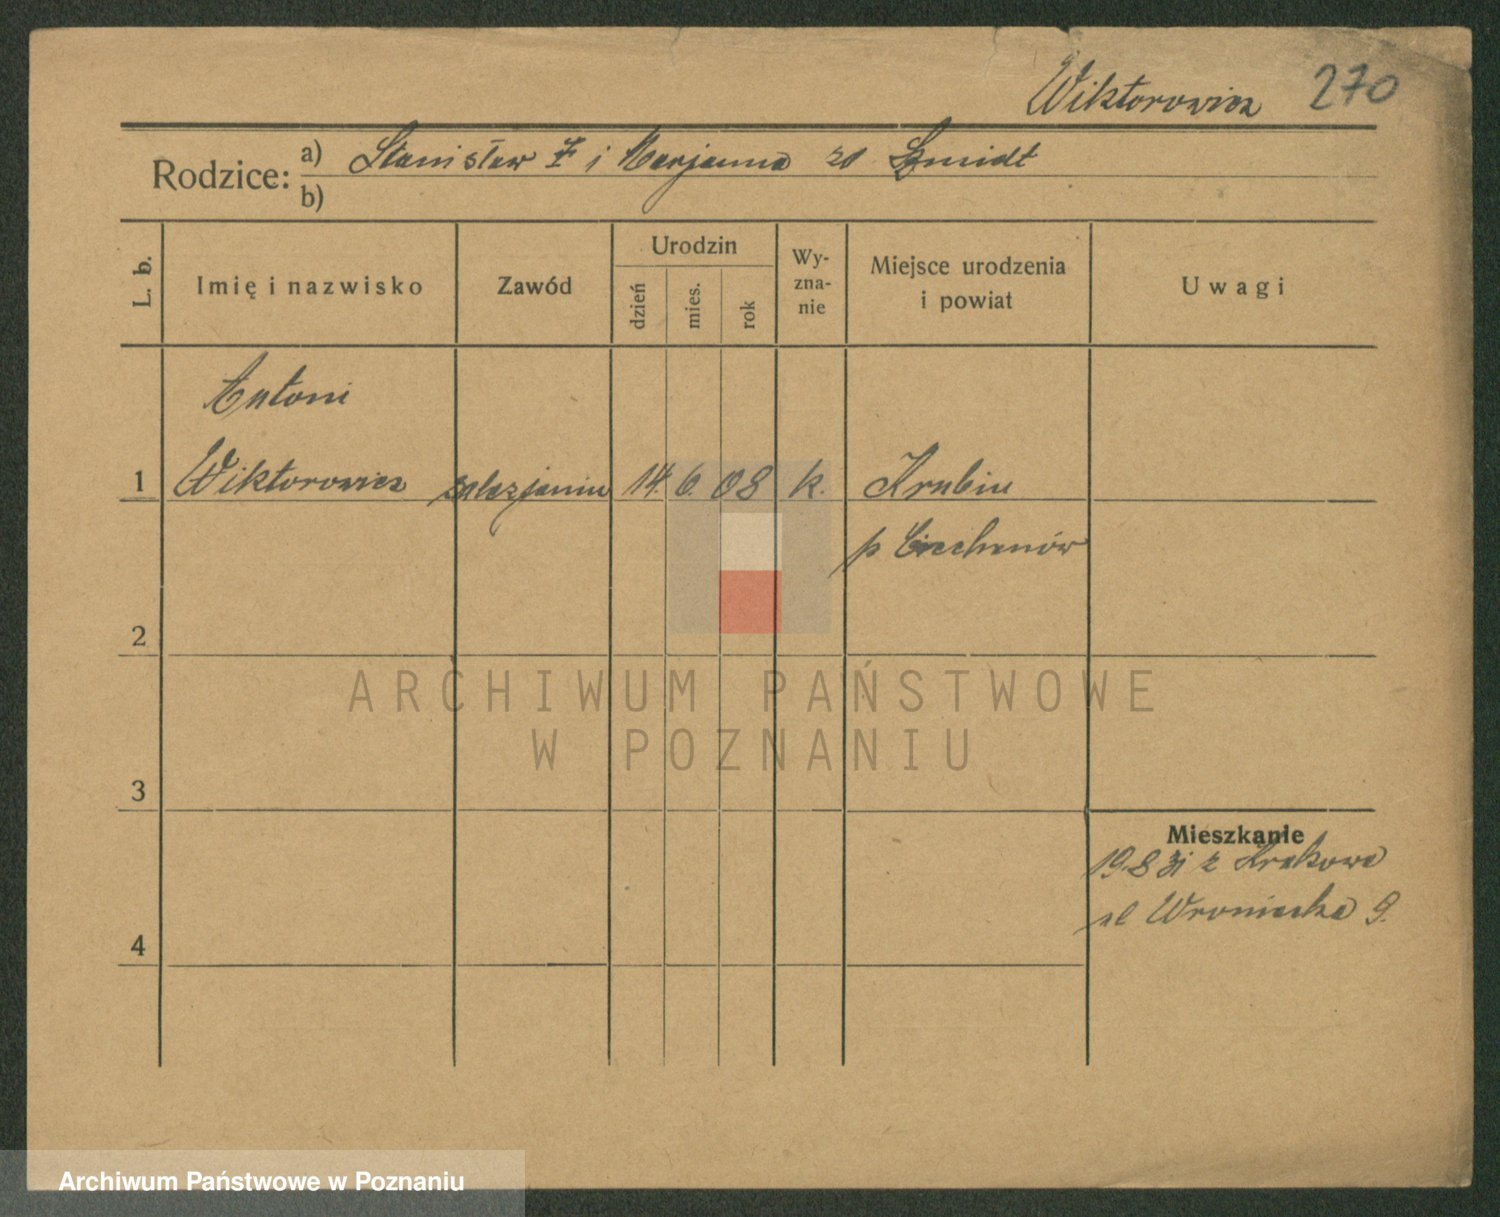 Wiktorowicz 270
Rodzice: a) Stanisław Ŧ i Marjanna zd Szmidt
b)
L. b. Imię i nazwisko Zawód Urodzin dzień mies. rok Wy-zna-nie Miejsce urodzenia i powiat Uwagi
Antoni
1 Wiktorowicz salezjanin 14. 6. 08 k. Krubin
p Ciechanów
2
ARCHIWUM PAŃSTWOWE
W POZNANIU
3
Mieszkanie
19.8 31 z Krakowa
ul Wroniecka 9.
4
Archiwum Państwowe w Poznaniu